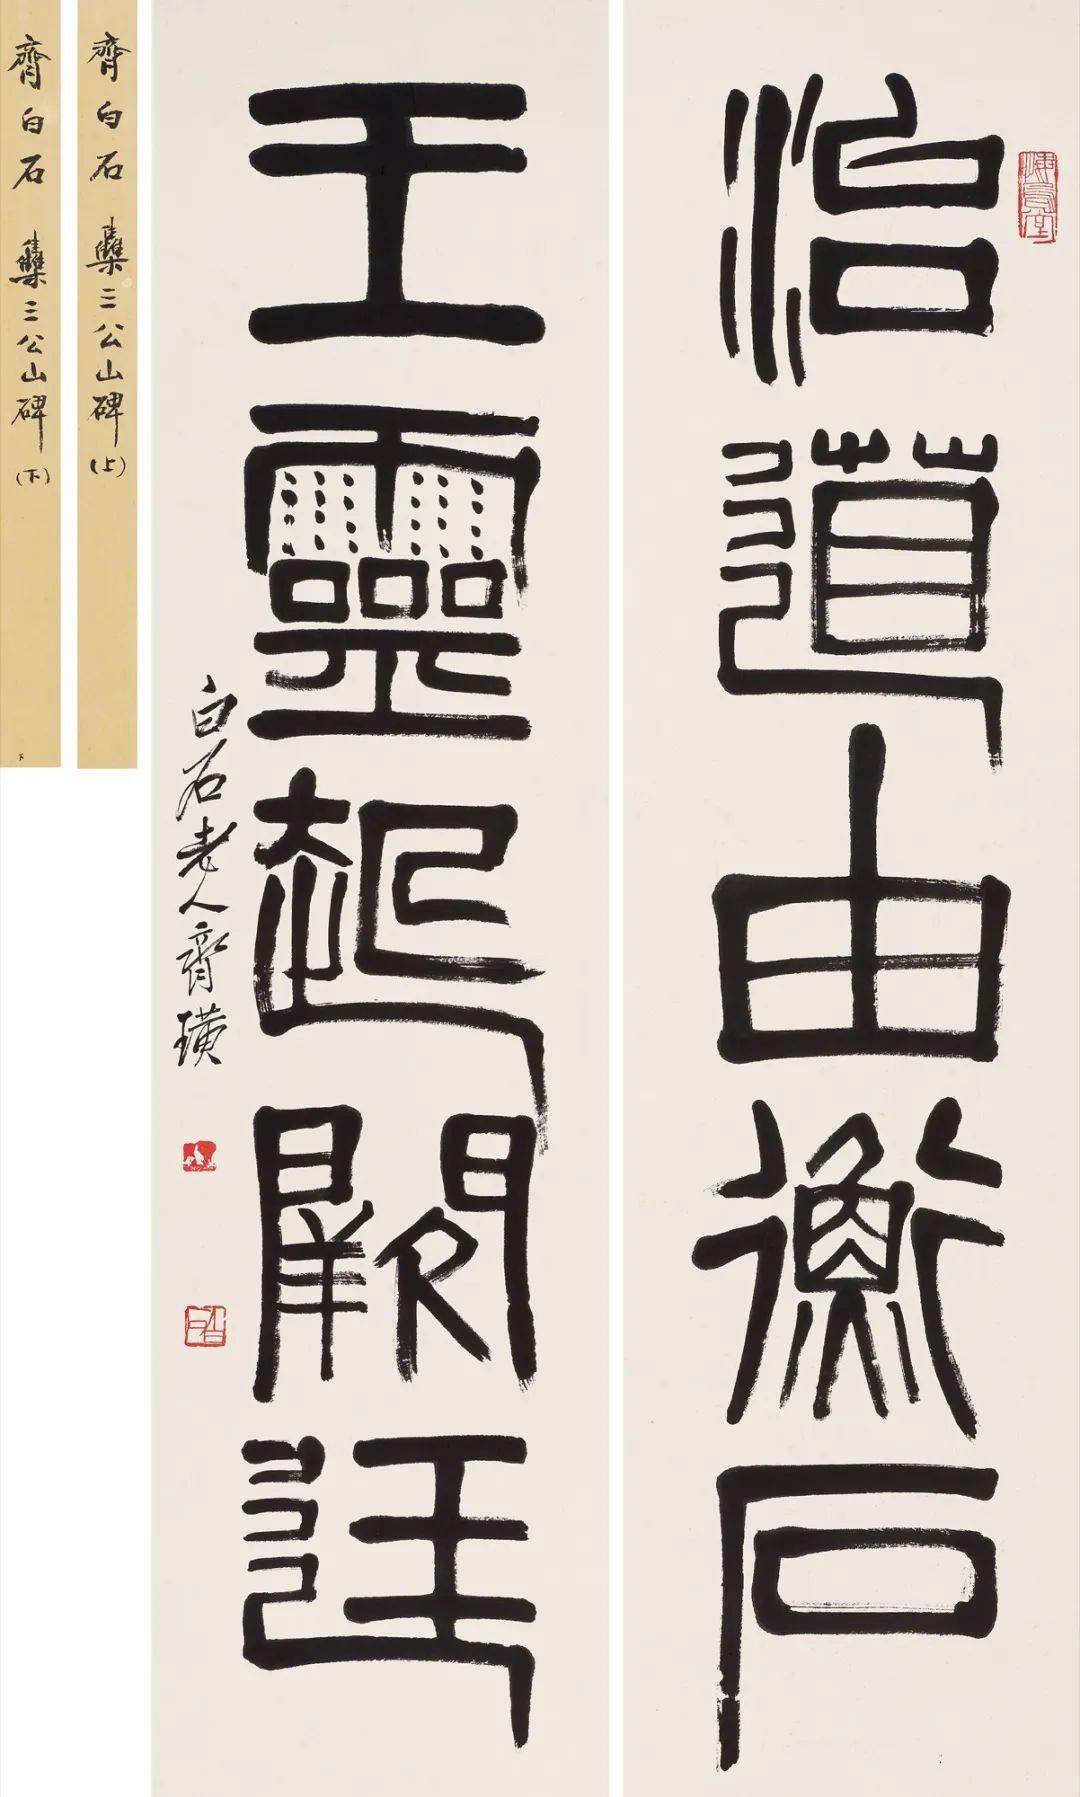 悔烏堂
治道由衡石
王靈起闕廷
白石老人齊璜
白石
齊白石 雧三公山碑(上)
齊白石 雧三公山碑(下)